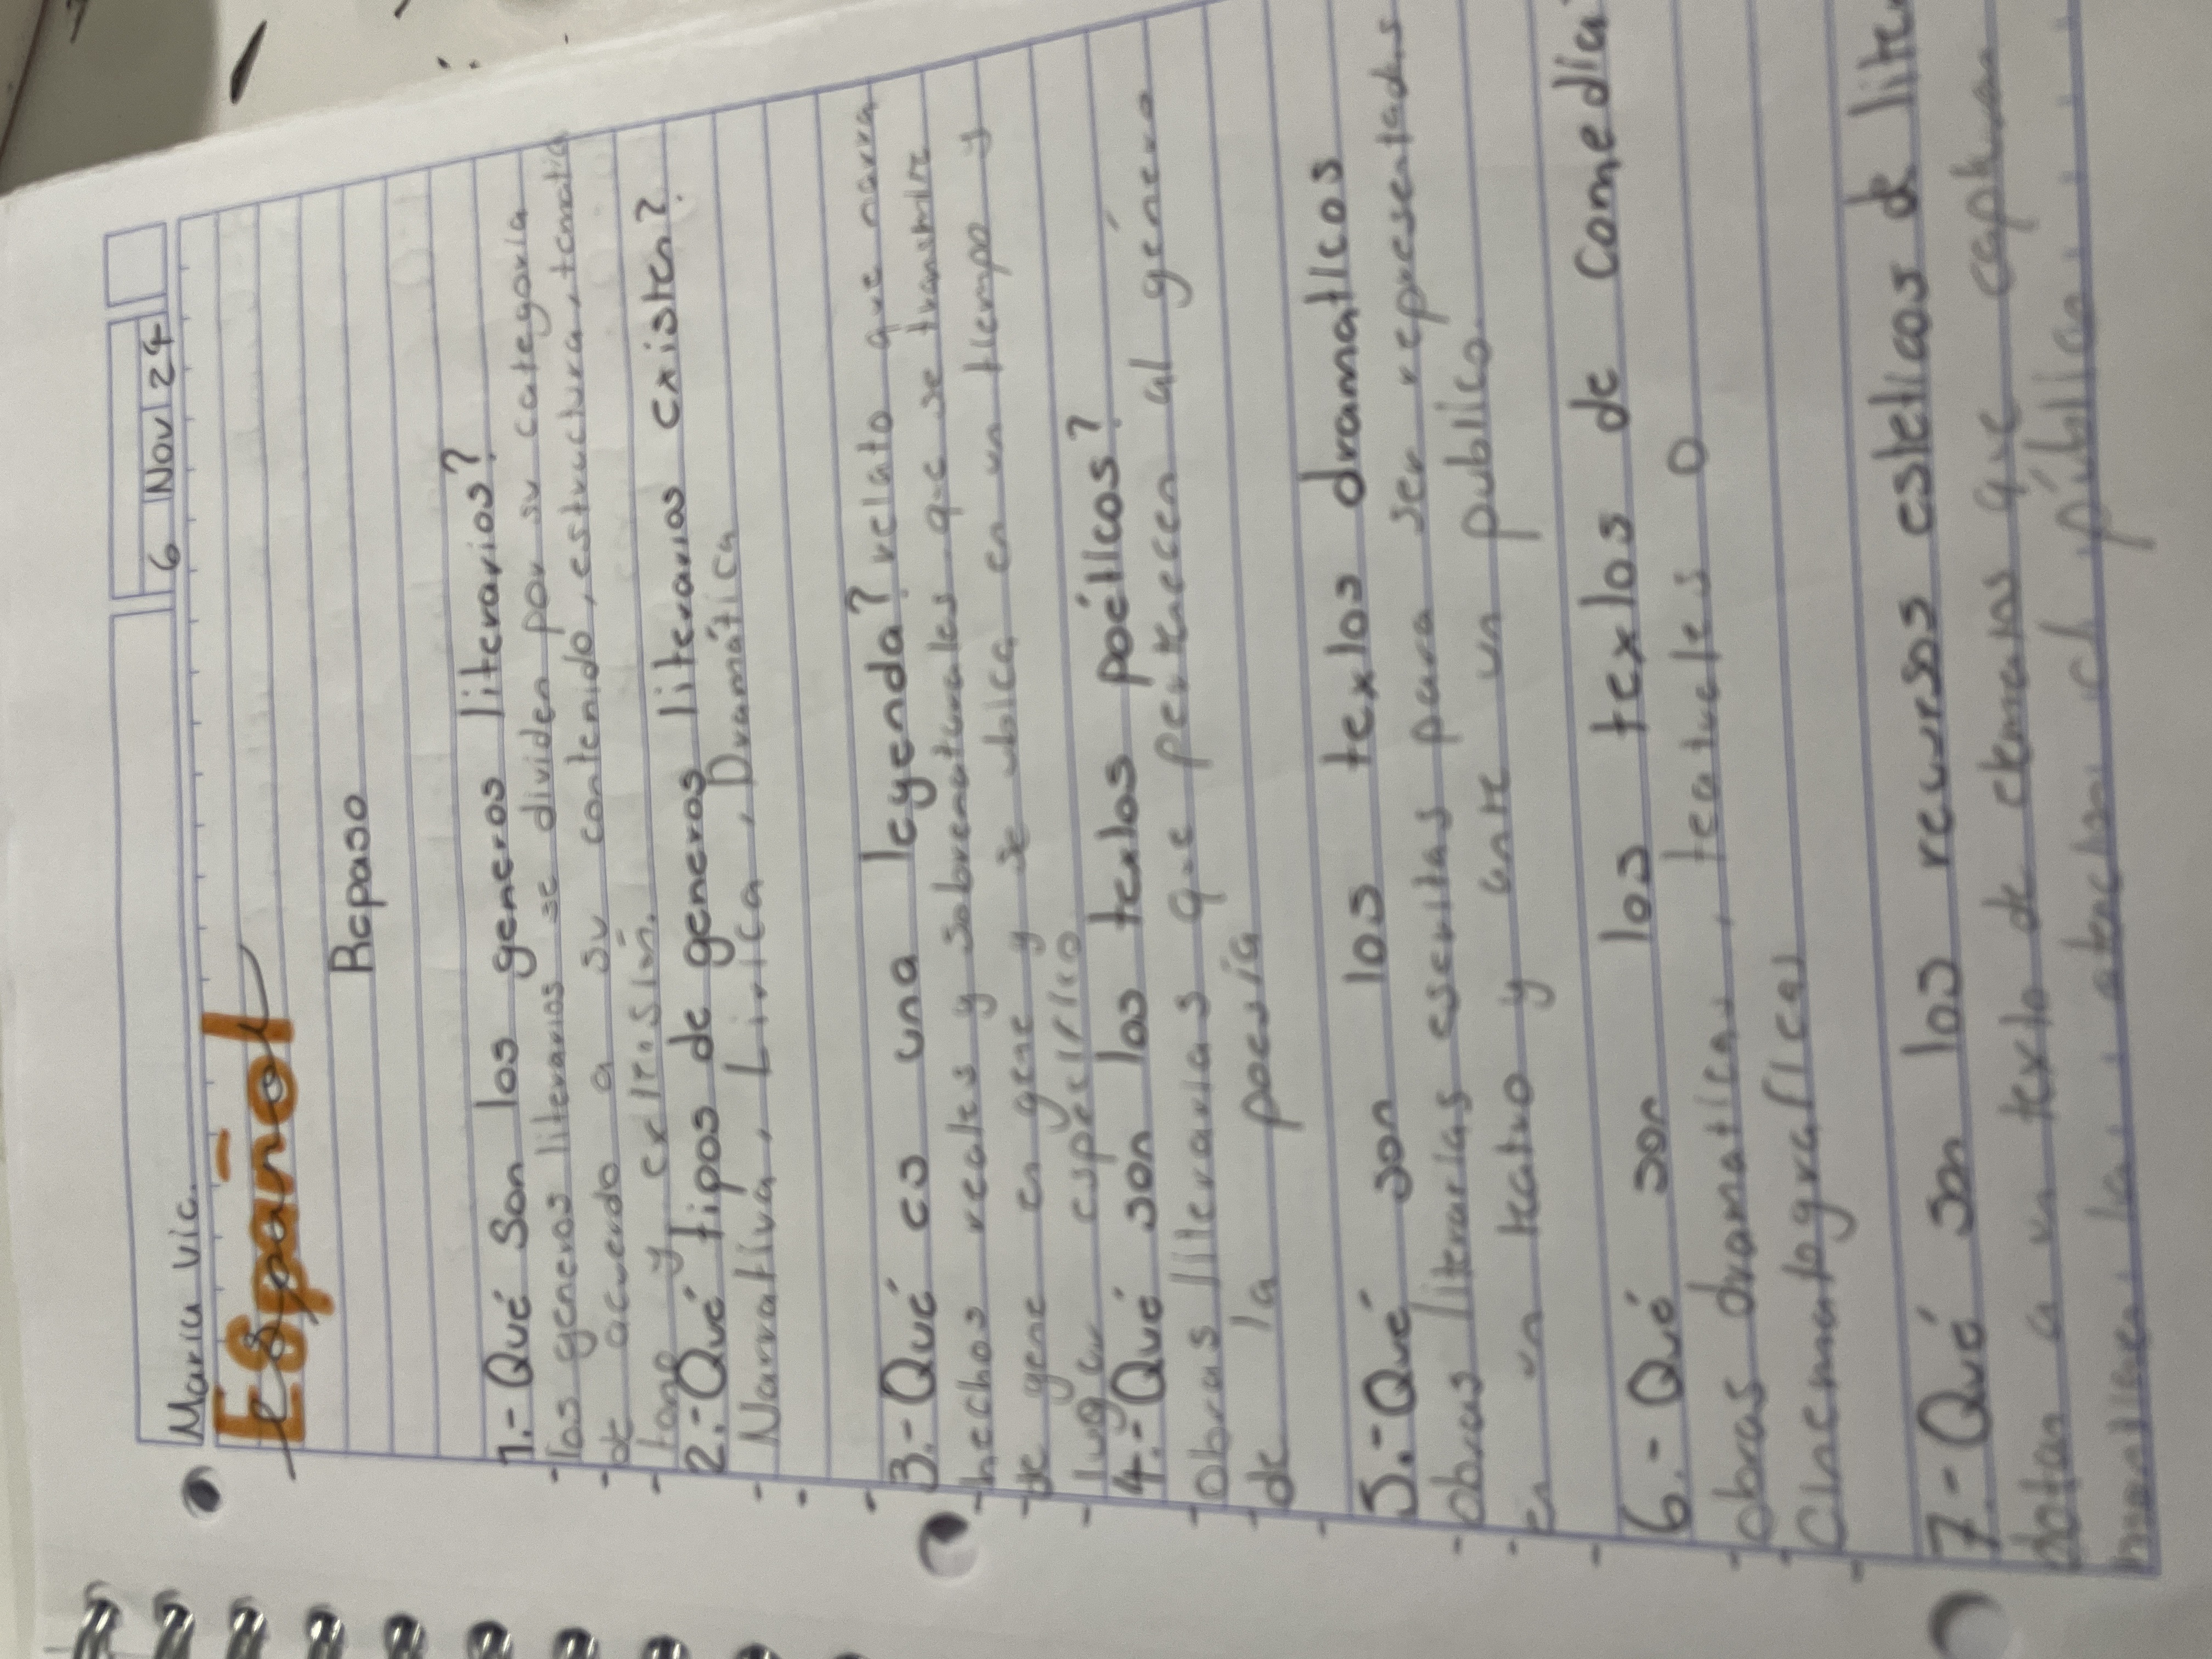 6 Nov 24
María Vic.
Español
Repaso
1.- Qué Son los generos literarios?
los generos literarios se dividen por su categoria
de acuerdo a su contenido, estructura, tematica
tono y
2.- Qué tipos de generos literarios existen?
Narrativa, Lirica, Dramática
3.- Qué es una leyenda? relato que narra
hechos reales y sobrenaturales que se transmite
de gene en gene y se ubica en un tiempo y
lugar especifico
4.- Qué son los textos poéticos?
obras literarias que pertenecen al género
de la poesía
5.- Qué son los textos dramaticos
obras literarias escritas para ser representadas
en un teatro y ante un publico.
6.- Qué son los textos de comedia
obras dramaticas, teatrales o
Cinematograficas
7.- Qué son los recursos esteticos de lite
dotan a un texto de elemenos que capturan
la atencion del público